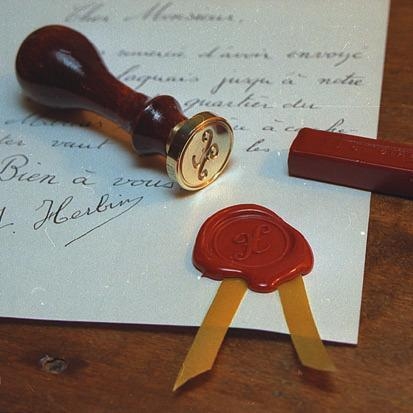 Cher Monsieur,
remercie d'avoir envoyé
laquais jusqu'à notre
quartier du
vaut les
Bien à vous
J. Herbin
H